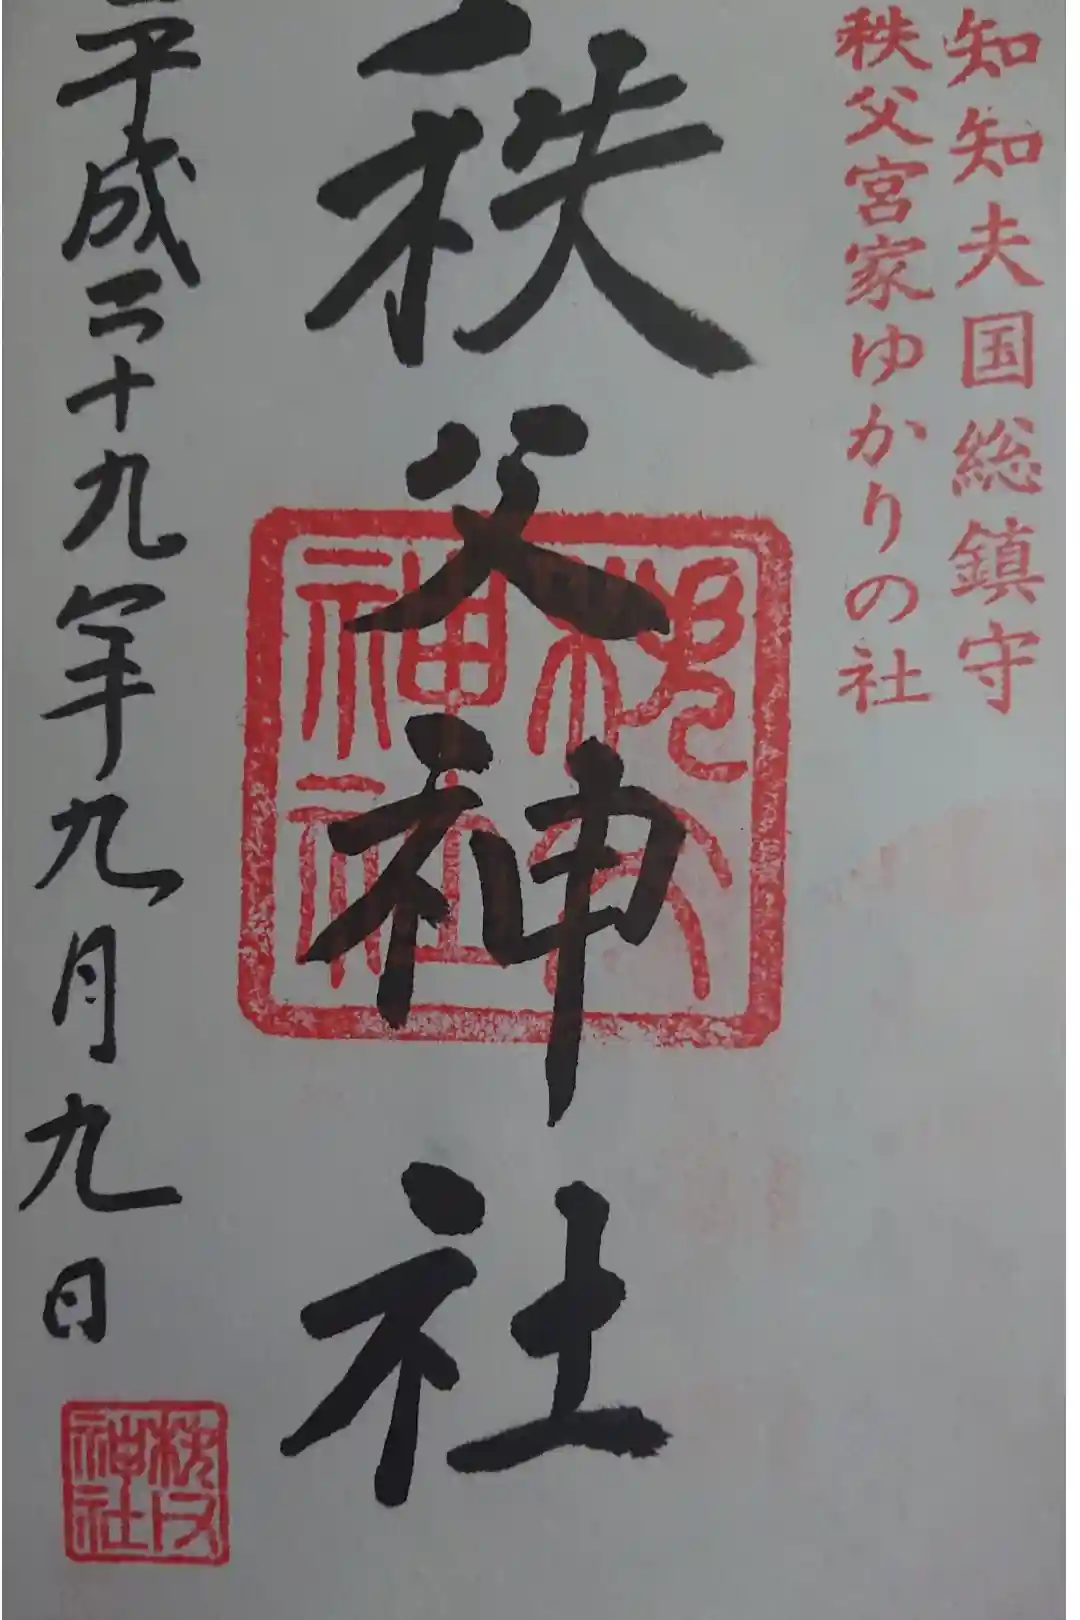 知知夫国総鎮守
秩父宮家ゆかりの社
秩父神社
平成二十九年九月九日
秩父
神社
秩父
神社